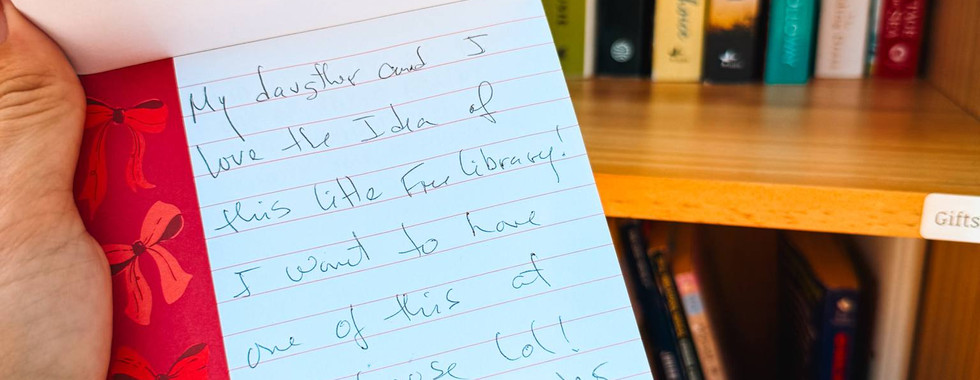 My daugther and I
love the Idea of
this little Free library!
I want to have
one of this at
lol!
Gifts